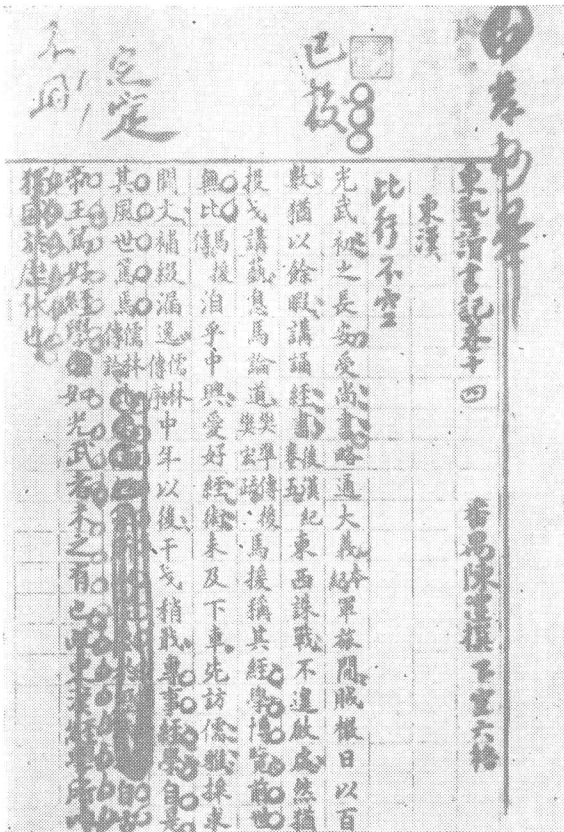 已校
不同
東塾讀書記卷十四 番禺陳澧撰 下空六格
東漢
此行不空
光武初之長安受尚書略通大義本紀軍旅間賊檄日以百
數猶以餘暇講誦經書後漢紀卷五東西誅戰不遑啟處然猶
投戈講藝息馬論道樊準傳後樊宏疏馬援稱其經學博覽前世
無比馬援傳洎乎中興愛好經術未及下車先訪儒雅採求
闕文補綴漏逸儒林傳序中年以後干戈稍戢專事經學自是
其風世篤焉儒林傳論自古
帝王篤好經學如光武者未之有也東漢經學所以